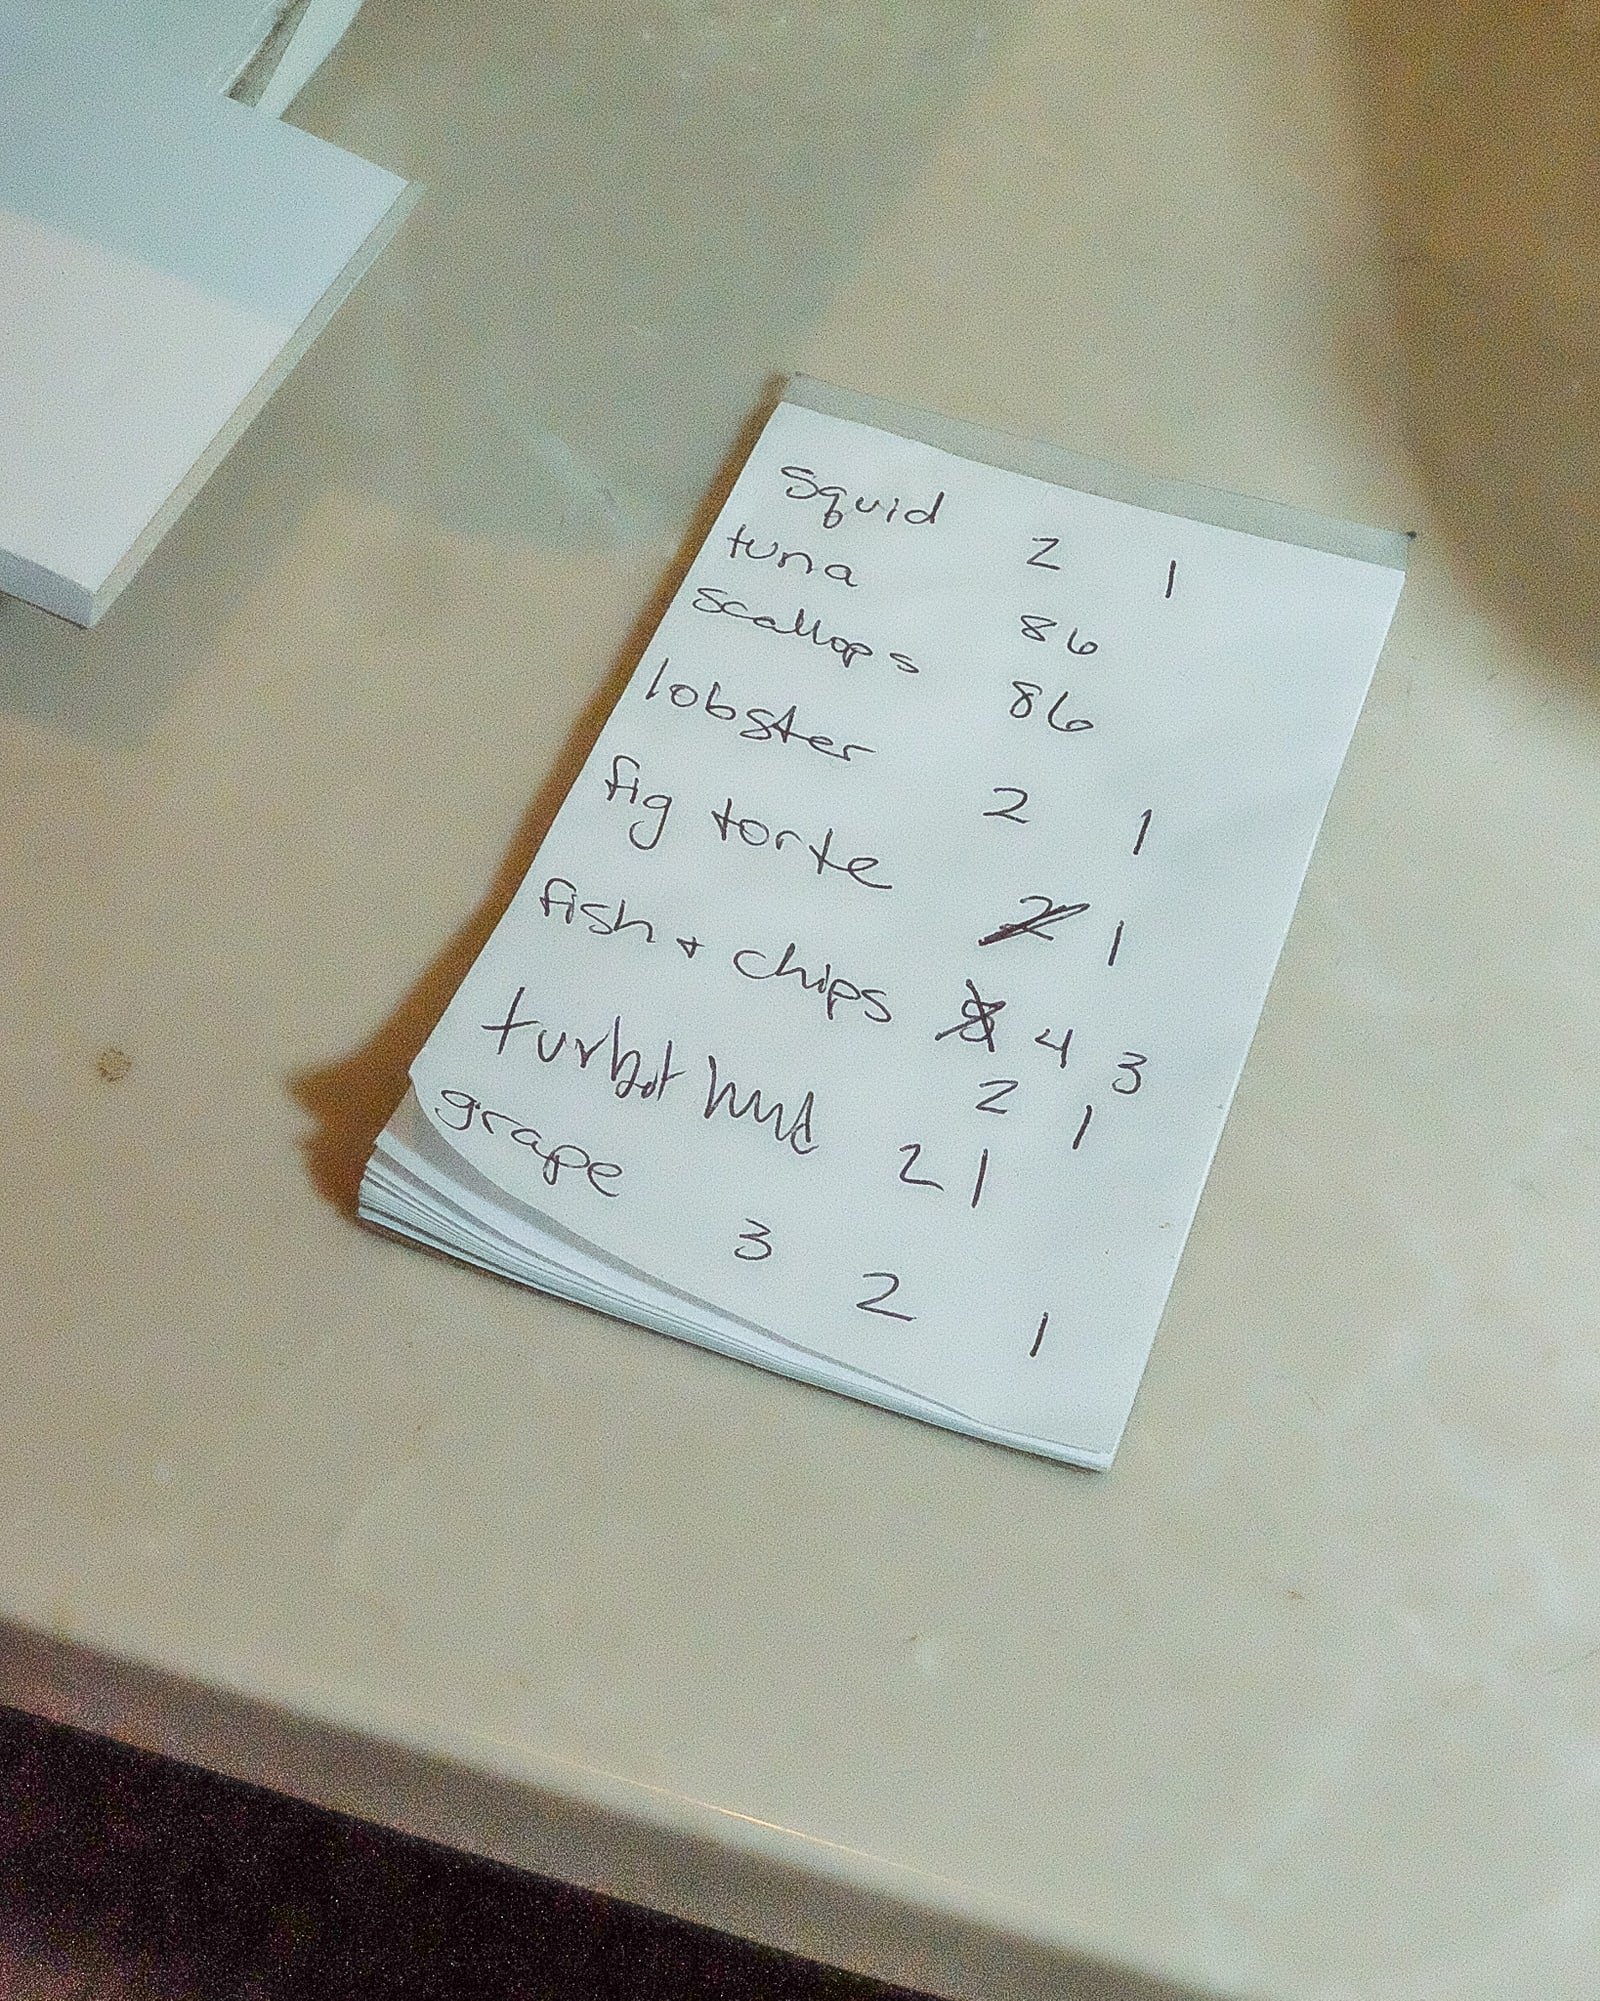 squid 2 1
tuna 86
scallops 86
lobster 2 1
fig torte 2 1
fish + chips 8 4 3
2 1
turbot 2 1
grape 3 2 1